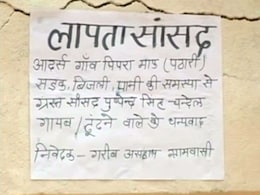 लापता सांसद
आदर्स गाँव पिपरा माड (पठारी)
सड़क, बिजली, पानी की समस्या से
ग्रस्त सांसद पुष्पेन्द्र सिंह चन्देल
गायब / ढूंढने वाले को धन्यवाद
निवेदक - गरीब असहाय ग्रामवासी